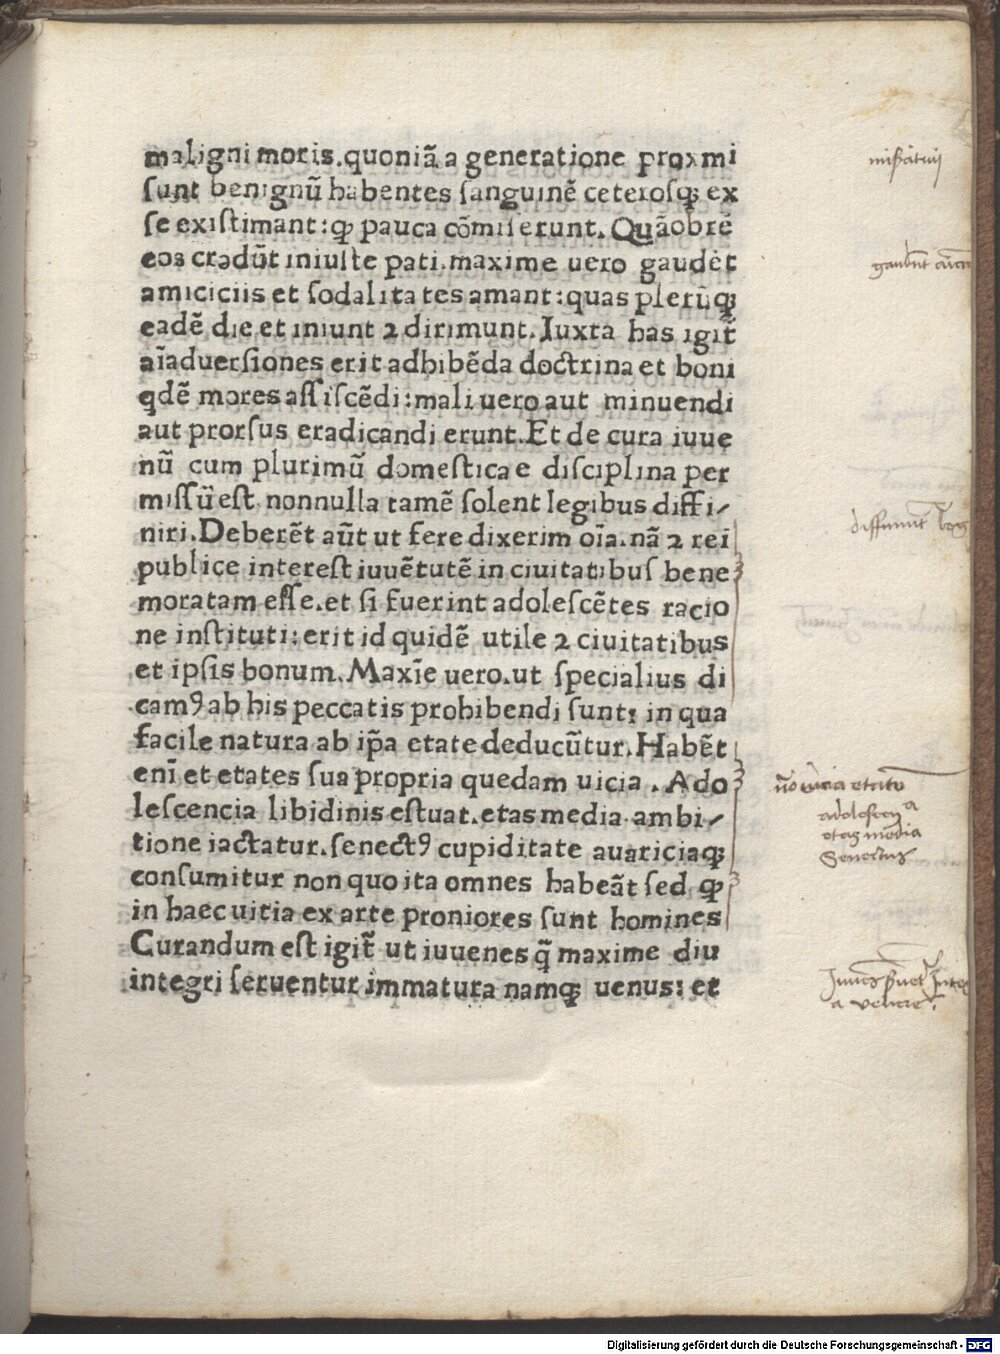 maligni moris.quoniā a generatione proxmi
ſunt benignū habentes ſanguinē ceteroſqꝫ ex
ſe exiſtimant:qꝫ pauca cōmiſerunt.Quāobrē
eos credūt iniuſte pati.maxime uero gaudēt
amiciciis et ſodalitates amant:quas plerūqꝫ
eadē die et iniunt ⁊ dirimunt.Iuxta has igit̄
aīaduerſiones erit adhibēda doctrina et boni
qdē mores aſſiſcēdi:mali uero aut minuendi
aut prorſus eradicandi erunt.Et de cura iuue
nū cum plurimū domeſticae diſciplina per
miſſū eſt nonnulla tamē ſolent legibus diffi/
niri.Deberēt aūt ut fere dixerim oīa.nā ⁊ rei
publice intereſt iuuētutē in ciuitatibuſ bene
moratam eſſe.et ſi fuerint adoleſcētes racio
ne inſtituti:erit id quidē utile ⁊ ciuitatibus
et ipſis bonum.Maxīe uero.ut ſpecialius di
camꝰ ab his peccatis prohibendi ſunt: in qua
facile natura ab ip̄a etate deducūtur.Habēt
enī et etates ſua propria quedam uicia.Ado
leſcencia libidinis eſtuat.etas media ambi/
tione iactatur.ſenectꝰ cupiditate auariciaqꝫ
conſumitur non quo ita omnes habeāt ſed qꝫ
in haec uitia ex arte proniores ſunt homines
Curandum eſt igit̄ ut iuuenes q̄ maxime diu
integri ſeruentur immatura namqꝫ uenus: et
adoleſcen
etas media
Senectus
a venere
Digitalisierung gefördert durch die Deutsche Forschungsgemeinschaft - DFG